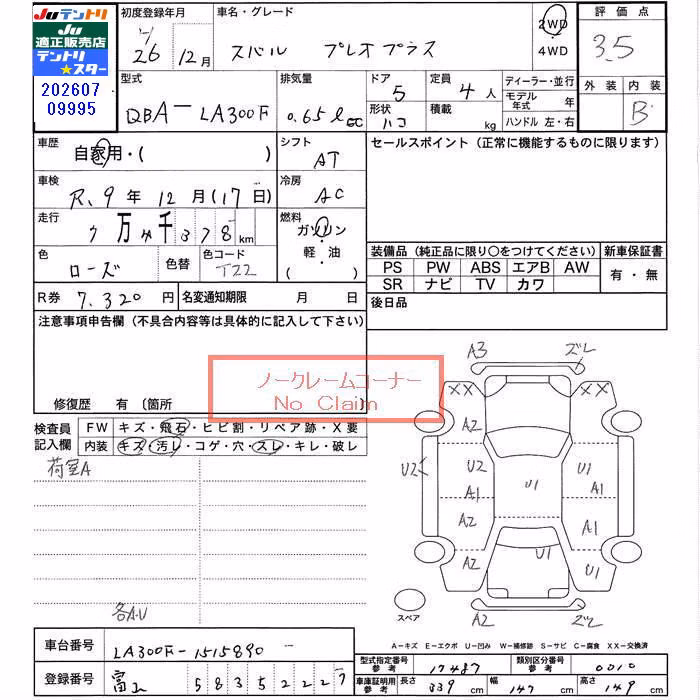 Juテントリ
Ju
適正販売店
テントリ
★スター
202607
09995
初度登録年月
26 12月
車名・グレード
スバル プレオプラス
2WD
4WD
評価点
3.5
外装 内装
B
型式
QBA-LA300F
排気量
0.65ℓ
ドア
5
形状
ハコ
定員
4人
積載
kg
ディーラー・並行
モデル年式 年
ハンドル 左・右
車歴
自家用・( )
シフト
AT
セールスポイント (正常に機能するものに限ります)
車検
R.9年12月(17日)
冷房
AC
走行
7万4千378km
燃料
ガソリン
軽・油
( )
色
ローズ
色替
色コード
T22
装備品 (純正品に限り〇をつけてください)
PS PW ABS エアB AW
SR ナビ TV カワ
新車保証書
有・無
R券 7.320円
名変通知期限 月 日
後日品
注意事項申告欄 (不具合内容等は具体的に記入して下さい)
修復歴 有 〔箇所 〕
ノークレームコーナー
No Claim
検査員
記入欄
FW キズ・飛石・ヒビ割・リペア跡・X要
内装 キズ・汚レ・コゲ・穴・スレ・キレ・破レ
荷室A
各A.U
A3 ズレ
XX XX
A2
U2 U2 U1 A1
A1 A1
A2
A2 U1 U1
A2 ズレ
スペア
A-キズ E-エクボ U-凹み W-補修跡 S-サビ C-腐食 XX-交換済
車台番号 LA300F-1515890
型式指定番号 参考 17487
類別区分番号 参考 0010
登録番号 富山 5835 2227
車庫証明用 参考 長さ 339 cm 幅 147 cm 高さ 149 cm